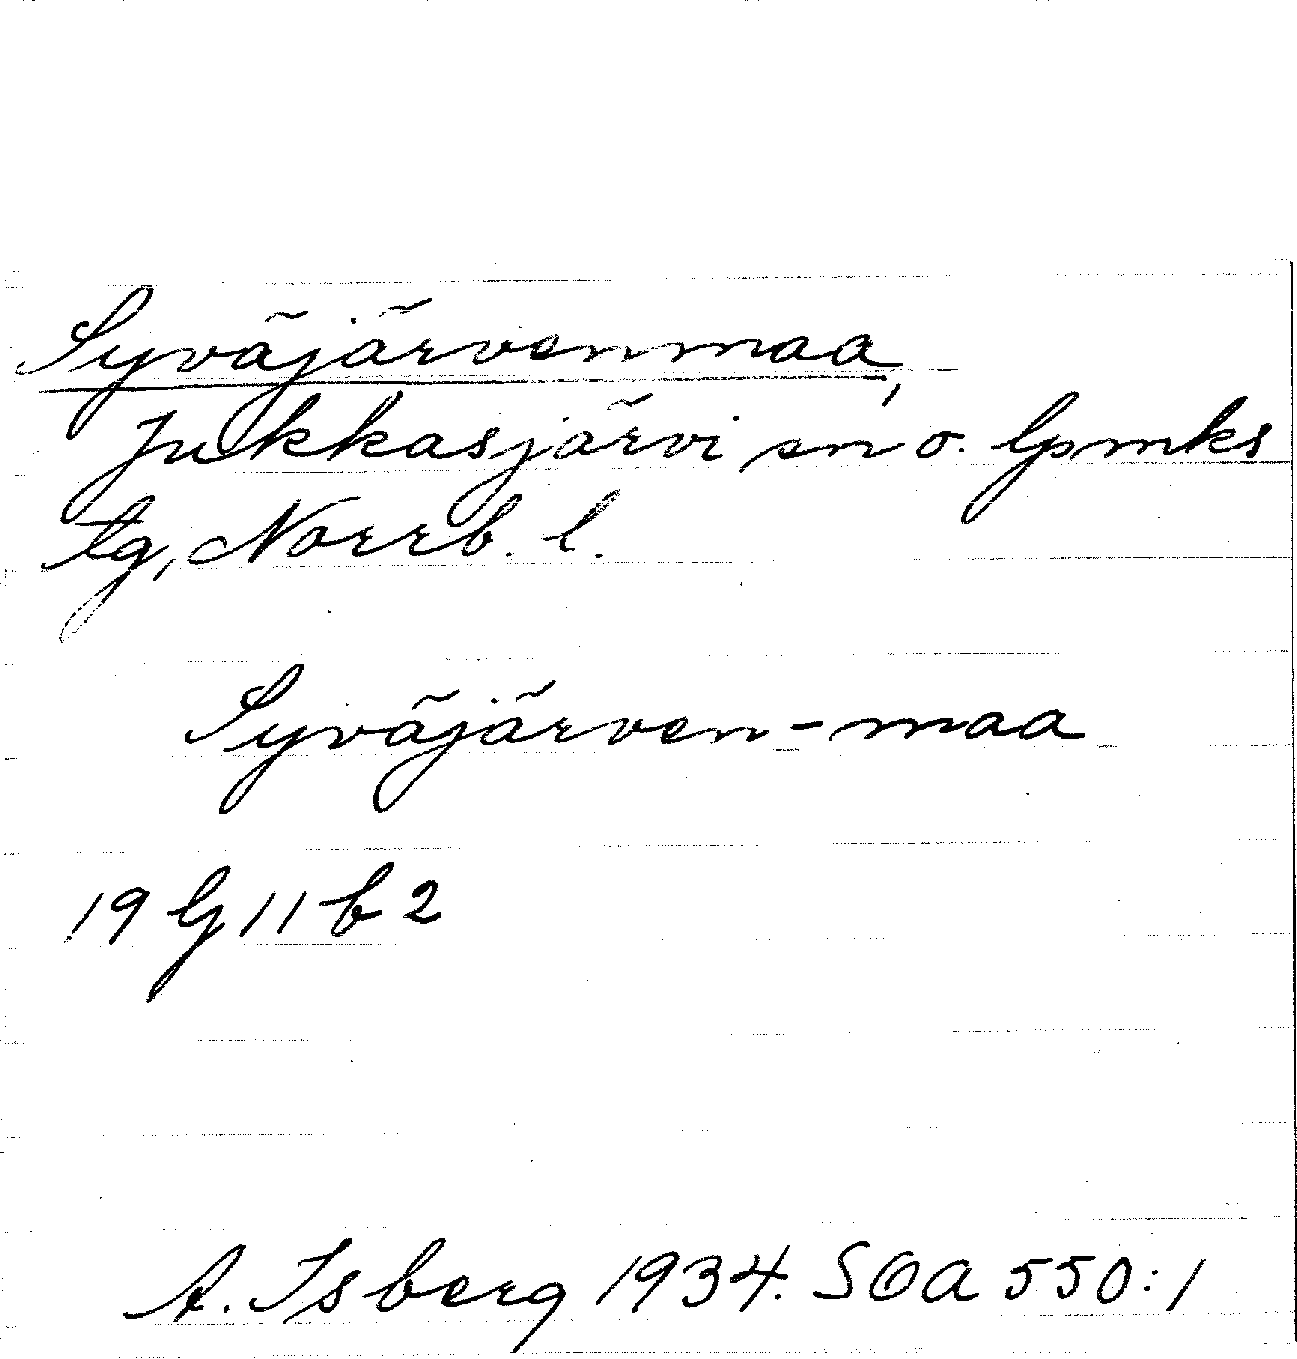 Syväjärvenmaa,
Jukkasjärvi sn o. lpmks
tg, Norrb. l.
Syväjärven-maa
19 G 11 b 2
A. Isberg 1934. SOA 550:1